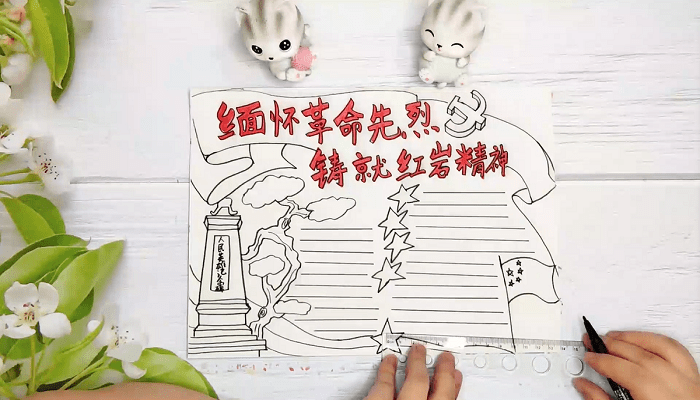 缅怀革命先烈
铸就红岩精神
人民英雄纪念碑